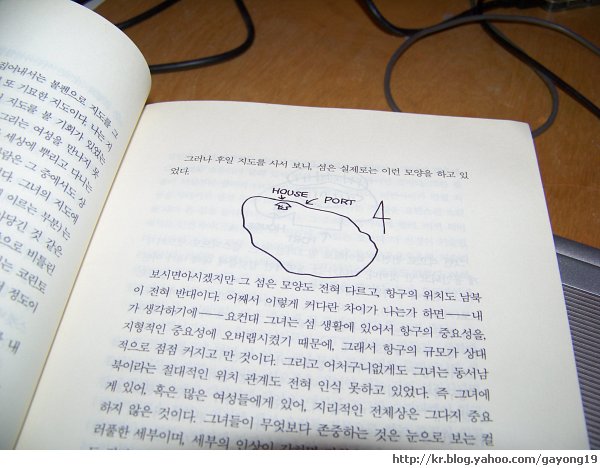 집어내서는 볼펜으로 지도를 그
또 기묘한 지도이다. 나는 지
지도를 볼 기회가 있었는
그라는 여성을 만나지 못
세상에 뿌리고 다니는
람은 그 중에서도 상
다. 그녀의 지도에
이르는 부분)는
아당긴 것 같은
으로 비틀린
는 코린트
정도이
내
그러나 후일 지도를 사서 보니, 섬은 실제로는 이런 모양을 하고 있
었다.
HOUSE PORT
4
보시면아시겠지만 그 섬은 모양도 전혀 다르고, 항구의 위치도 남북
이 전혀 반대이다. 어째서 이렇게 커다란 차이가 나는가 하면――내
가 생각하기에――요컨대 그녀는 섬 생활에 있어서 항구의 중요성을,
지형적인 중요성에 오버랩시켰기 때문에, 그래서 항구의 규모가 상대
적으로 점점 커지고 만 것이다. 그리고 어처구니없게도 그녀는 동서남
북이라는 절대적인 위치 관계도 전혀 인식 못하고 있었다. 즉 그녀에
게 있어, 혹은 많은 여성들에게 있어, 지리적인 전체상은 그다지 중요
하지 않은 것이다. 그녀들이 무엇보다 존중하는 것은 눈으로 보는 컬
러풀한 세부이며, 세부의 인상이
http://kr.blog.yahoo.com/gayong19